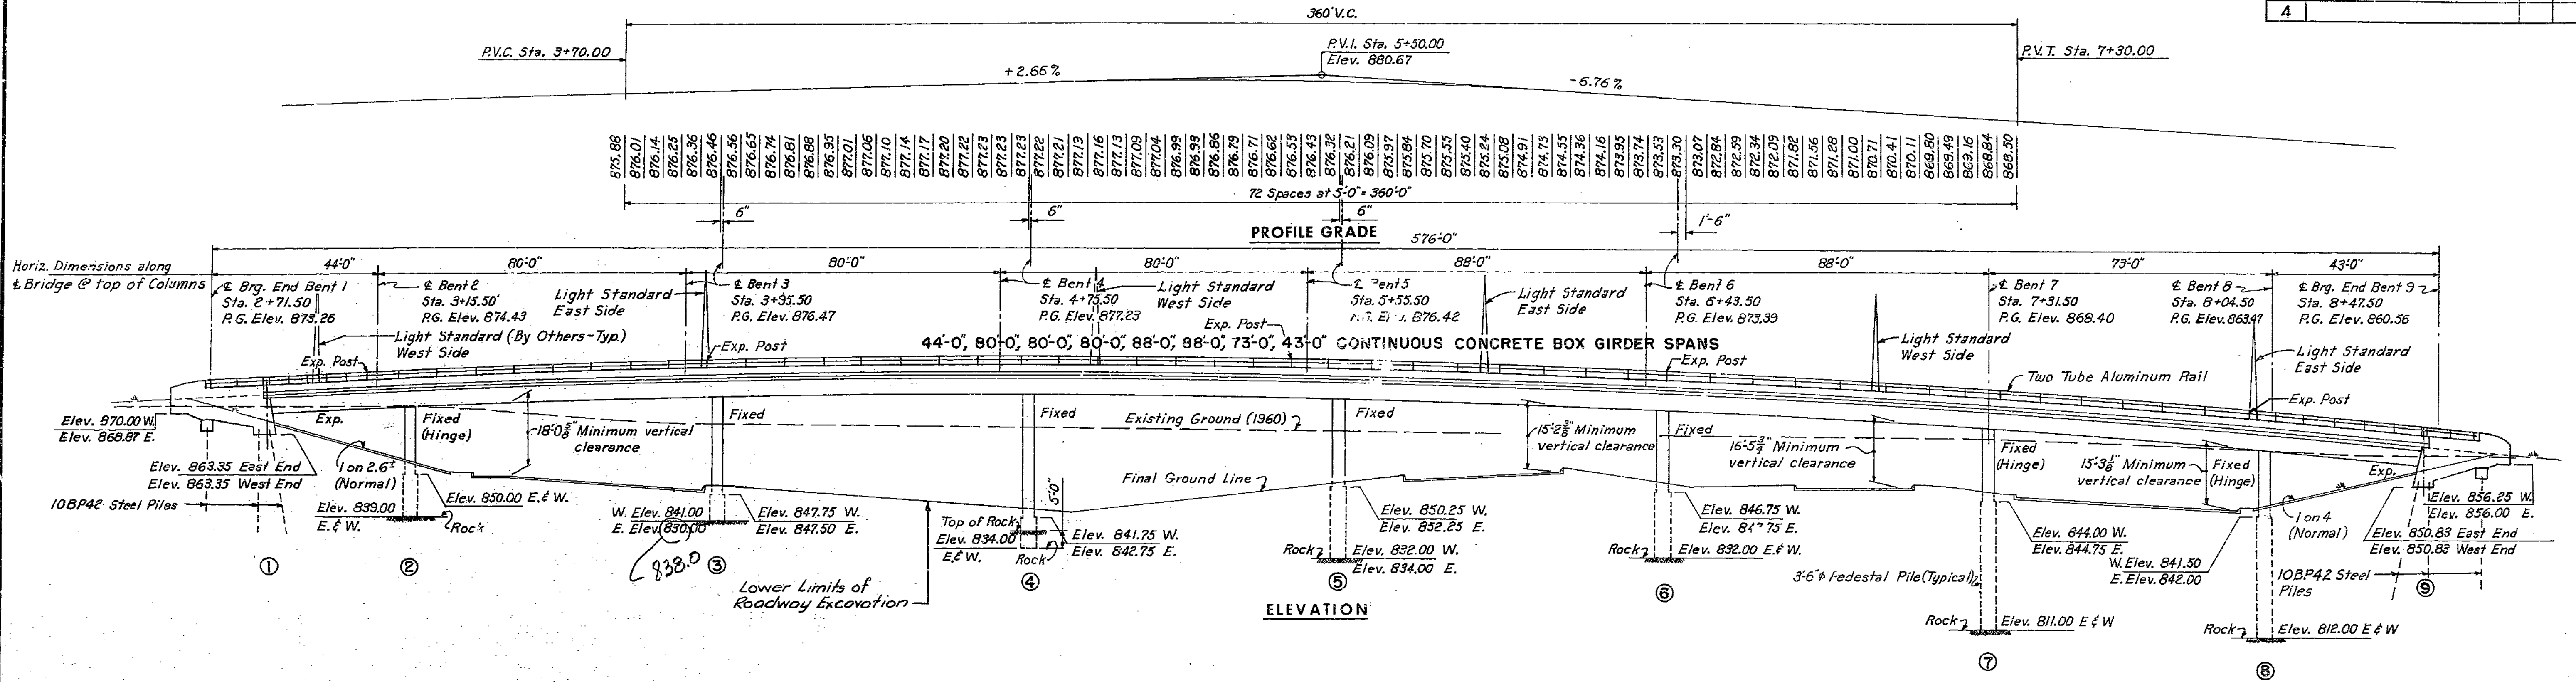 4
360' V.C.
P.V.C. Sta. 3+70.00
P.V.I. Sta. 5+50.00
Elev. 880.67
P.V.T. Sta. 7+30.00
+2.66%
-6.76%
875.88
876.01
876.14
876.25
876.36
876.46
876.56
876.65
876.74
876.81
876.88
876.95
877.01
877.06
877.10
877.14
877.17
877.20
877.22
877.23
877.23
877.23
877.22
877.21
877.19
877.16
877.13
877.09
877.04
876.99
876.93
876.86
876.79
876.71
876.62
876.53
876.43
876.32
876.21
876.09
875.97
875.84
875.70
875.55
875.40
875.24
875.08
874.91
874.73
874.55
874.36
874.16
873.95
873.74
873.53
873.30
873.07
872.84
872.59
872.34
872.09
871.82
871.56
871.28
871.00
870.71
870.41
870.11
869.80
869.49
869.16
868.84
868.50
72 Spaces at 5'-0" = 360'-0"
6"
6"
6"
1'-6"
PROFILE GRADE
576'-0"
Horiz. Dimensions along
℄ Bridge @ top of Columns
44'-0"
80'-0"
80'-0"
80'-0"
88'-0"
88'-0"
73'-0"
43'-0"
℄ Brg. End Bent 1
Sta. 2+71.50
P.G. Elev. 873.26
℄ Bent 2
Sta. 3+15.50
P.G. Elev. 874.43
Light Standard
East Side
℄ Bent 3
Sta. 3+95.50
P.G. Elev. 876.47
℄ Bent 4
Sta. 4+75.50
P.G. Elev. 877.23
Light Standard
West Side
℄ Bent 5
Sta. 5+55.50
P.G. Elev. 876.42
Light Standard
East Side
℄ Bent 6
Sta. 6+43.50
P.G. Elev. 873.39
℄ Bent 7
Sta. 7+31.50
P.G. Elev. 868.40
℄ Bent 8
Sta. 8+04.50
P.G. Elev. 863.47
℄ Brg. End Bent 9
Sta. 8+47.50
P.G. Elev. 860.56
Light Standard (By Others-Typ.)
West Side
Exp. Post
Exp. Post
Exp. Post
44'-0", 80'-0", 80'-0", 80'-0", 88'-0", 88'-0", 73'-0", 43'-0" CONTINUOUS CONCRETE BOX GIRDER SPANS
Exp. Post
Light Standard
West Side
Light Standard
East Side
Two Tube Aluminum Rail
Exp. Post
Elev. 870.00 W.
Elev. 868.87 E.
Exp.
Fixed
(Hinge)
18'-0⅝" Minimum vertical
clearance
Fixed
Fixed
Existing Ground (1960)
Fixed
15'-2⅜" Minimum
vertical clearance
Fixed
16'-5¾" Minimum
vertical clearance
Fixed
(Hinge)
15'-3⅛" Minimum
vertical clearance
Fixed
(Hinge)
Exp.
Elev. 863.35 East End
Elev. 863.35 West End
1 on 2.6±
(Normal)
10BP42 Steel Piles
Elev. 839.00
E. & W.
Elev. 850.00 E. & W.
Rock
W. Elev. 841.00
E. Elev. 830.00
838.0
Elev. 847.75 W.
Elev. 847.50 E.
Final Ground Line
5'-0"
Top of Rock
Elev. 834.00
E. & W.
Rock
Elev. 841.75 W.
Elev. 842.75 E.
Elev. 850.25 W.
Elev. 852.25 E.
Rock
Elev. 832.00 W.
Elev. 834.00 E.
Elev. 846.75 W.
Elev. 847.75 E.
Rock
Elev. 832.00 E. & W.
Elev. 844.00 W.
Elev. 844.75 E.
3'-6"φ Pedestal Pile (Typical)
W. Elev. 841.50
E. Elev. 842.00
1 on 4
(Normal)
Elev. 856.25 W.
Elev. 856.00 E.
Elev. 850.83 East End
Elev. 850.83 West End
10BP42 Steel
Piles
Lower Limits of
Roadway Excavation
Rock
Elev. 811.00 E & W
Rock
Elev. 812.00 E & W
1
2
3
4
5
6
7
8
9
ELEVATION